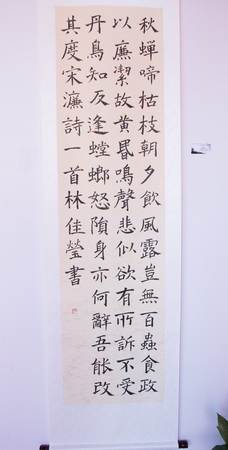 秋蟬啼枯枝朝夕飲風露豈無百蟲食政
以廉潔故黃昬鳴聲悲似欲有所訴不受
丹鳥知反逢螳螂怒隕身亦何辭吾能改
其度宋濂詩一首林佳瑩書